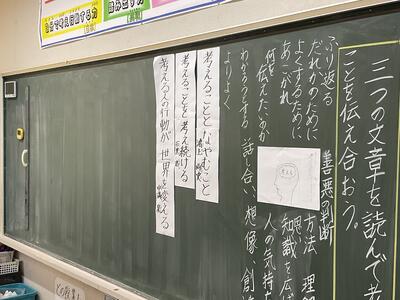 三つの文章を読んで考
ことを伝え合おう。
善悪の判断
ふり返る
だれかのために
よくするために
あこがれ
何を伝えたいのか
わかろうとする
よりよく
考える
方法
理解
思い
知識を広
人の気持
話し合い、想像、創造
考えることとなやむこと
考えることを考え続ける
考える人の行動が世界を変える